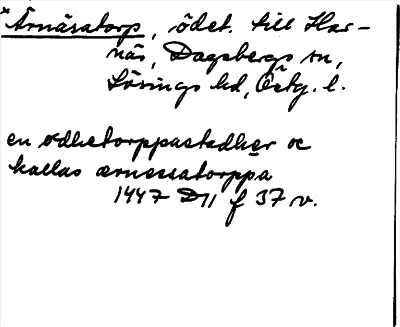 *Ärnäsatorp, ödet. till Har-
näs, Dagsbergs sn,
Lösings hd, Östg. l.
en ødhetorppastadher oc
kallas ærnessatorppa
1447 D11 f 37 v.